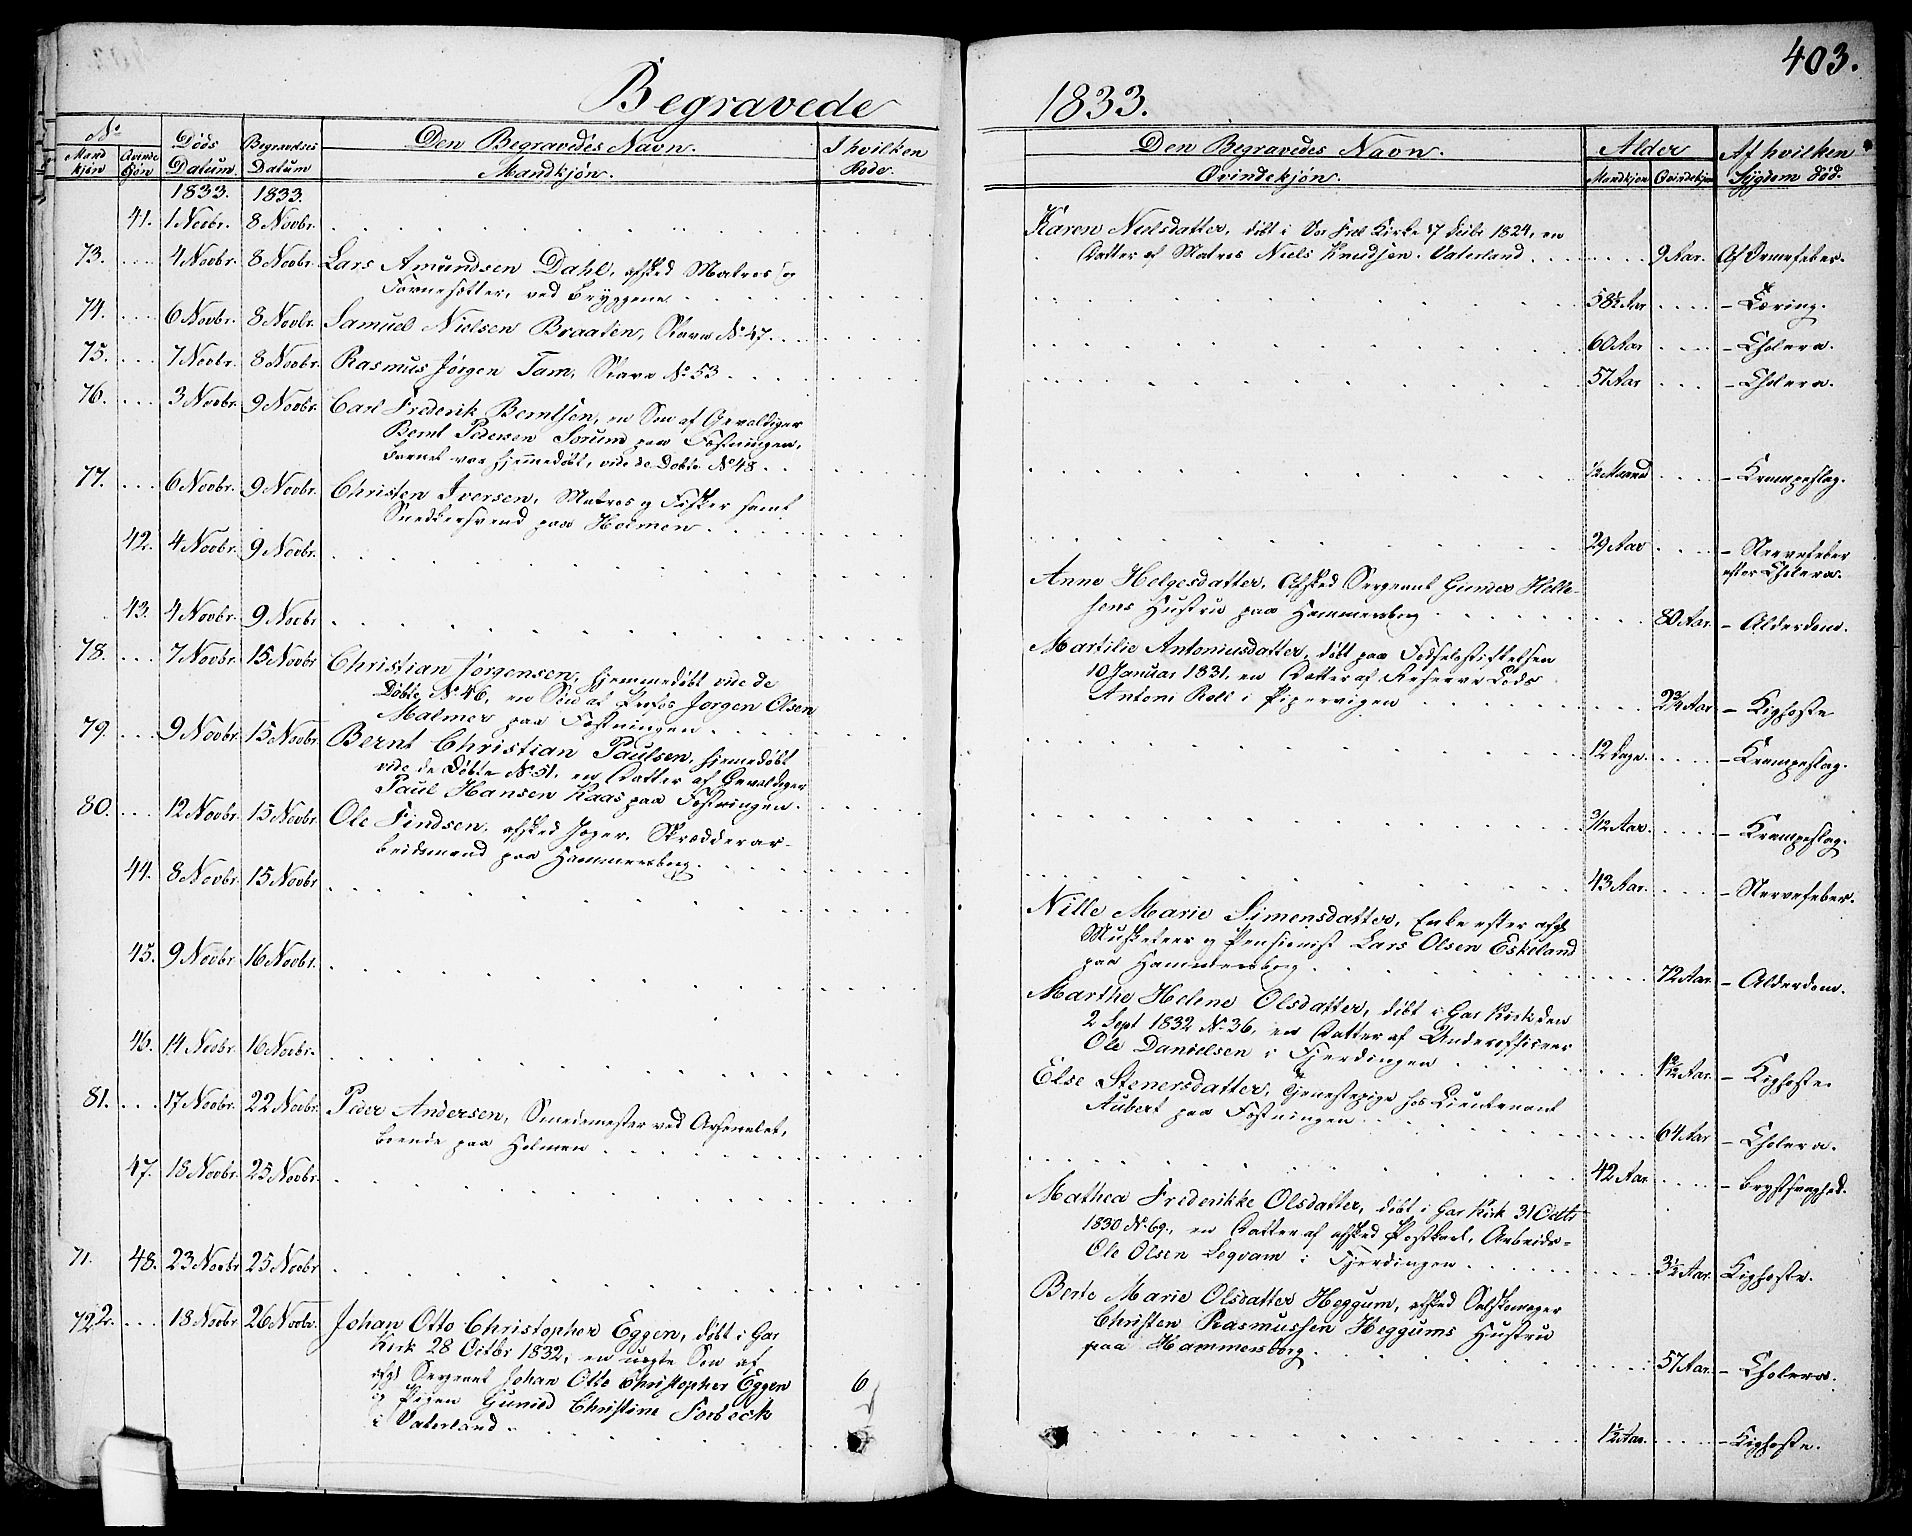 403.
Begravede
1833.
No
Mand kjön
Qvinde Kjön
Döds Datum
Begravelses Datum
Den Begravedes Navn.
Mandkjön.
I hvilken Rode.
Den Begravedes Navn.
Qvindekjön.
Alder
Mandkjön
Qvindekjön
Af hvilken
Sÿgdom död.
1833. 1833.
41. 1 Novbr. 8 Novbr.
Karen Nielsdatter, döbt i Vor Frel Kirke 17 1824, en
Datter af Matros Niels Knudsen. Vaterland 9 Aar. Af Ormefeber.
73. 4 Novbr. 8 Novbr. Lars Amundsen Dahl, afsked Matros og
ved Bryggene 58½ Aar - Tæring.
74. 6 Novbr. 8 Novbr. Samuel Nielsen Braaten, Slave No 47. 60 Aar - Cholera.
75. 7 Novbr. 8 Novbr. Rasmus Jörgen Tam, Slave No 53 57 Aar - Cholera.
76. 3 Novbr. 9 Novbr. Carl Frederik Berntsen, en Sön af Gevaldiger
Bernt Pedersen Sorum paa Fæstningen,
Barnet var hjemmedöbt, vide de Döbte No 48 ½ Maaned - Krampeslag.
77. 6 Novbr. 9 Novbr. Christen Iversen, Matros og Fisker samt
Snedkersvend paa Holmen 29 Aar - Nervefeber
efter Cholera.
42. 4 Novbr. 9 Novbr.
Anne Helgesdatter, Afsked Sergeant Gunder Holle-
sens Hustru paa Hammersborg 80 Aar - Alderdom.
43. 4 Novbr. 9 Novbr
Martilie Antoniusdatter, döbt paa Födselsstiftelsen
10 Januar 1831, en Datter af Reserve Lods
Antoni Roll i Pipervigen 2¾ Aar - Kighoste
78. 7 Novbr. 15 Novbr Christian Jörgensen, hjemmedöbt vide de
Döbte No 46, en Sön af Profos Jörgen Olsen
Malmer paa Fæstningen 12 Dage. - Krampeslag.
79. 9 Novbr. 15 Novbr. Bernt Christian Paulsen, hjemmedöbt
vide de Döbte No 51, en Datter af Gevaldiger
Paul Hansen Kaas paa Fæstningen. 3/12 Aar. - Krampeslag.
80. 12 Novbr. 15 Novbr. Ole Findsen, afsked Jæger, Skrædderar-
beidsmand paa Hammersborg. 43 Aar. - Nervefeber.
44. 8 Novbr. 15 Novbr
Nille Marie Simensdatter, Enke efter afg
Musketeer og Pensionist Lars Olsen Eskeland
paa Hammersborg 72 Aar. - Alderdom.
45. 9 Novbr. 16 Novbr.
Marthe Helene Olsdatter, döbt i Gar Kirk den
2 Sept 1832 No 36, en Datter af Underofficeer
Ole Danielsen i Fjerdingen Aar. - Kighoste
46. 14 Novbr. 16 Novbr.
Else Stenersdatter, Tjenestepige hos Lieutenant
Aubert paa Fæstningen 64 Aar - Cholera.
81. 17 Novbr. 22 Novbr. Peder Andersen, Smedemester ved Arsenalet,
boende paa Holmen 42 Aar - Brystsvaghed.
47. 18 Novbr. 25 Novbr.
Mathea Frederikke Olsdatter, döbt i Gar Kirk 31 Octbr
1830 No 69, en Datter af afsked Postkarl, Arbeids-
Ole Olsen Legvam i Fjerdingen 3½ Aar. Kighoste.
71. 48. 23 Novbr 25 Novbr
Berte Marie Olsdatter Heggum, afsked
Christen Rasmussen Heggums Hustru
paa Hammersborg 57 Aar. - Cholera.
722. 18 Novbr 26 Novbr. Johan Otto Christopher Eggen, döbt i Gar
Kirk 28 Octbr 1832, en uægte Sön af
afg Sergeant Johan Otto Christopher Eggen
og Pigen Gunild Christine Forbeck
i Vaterland. 6 1½ Aar. - Kighoste.